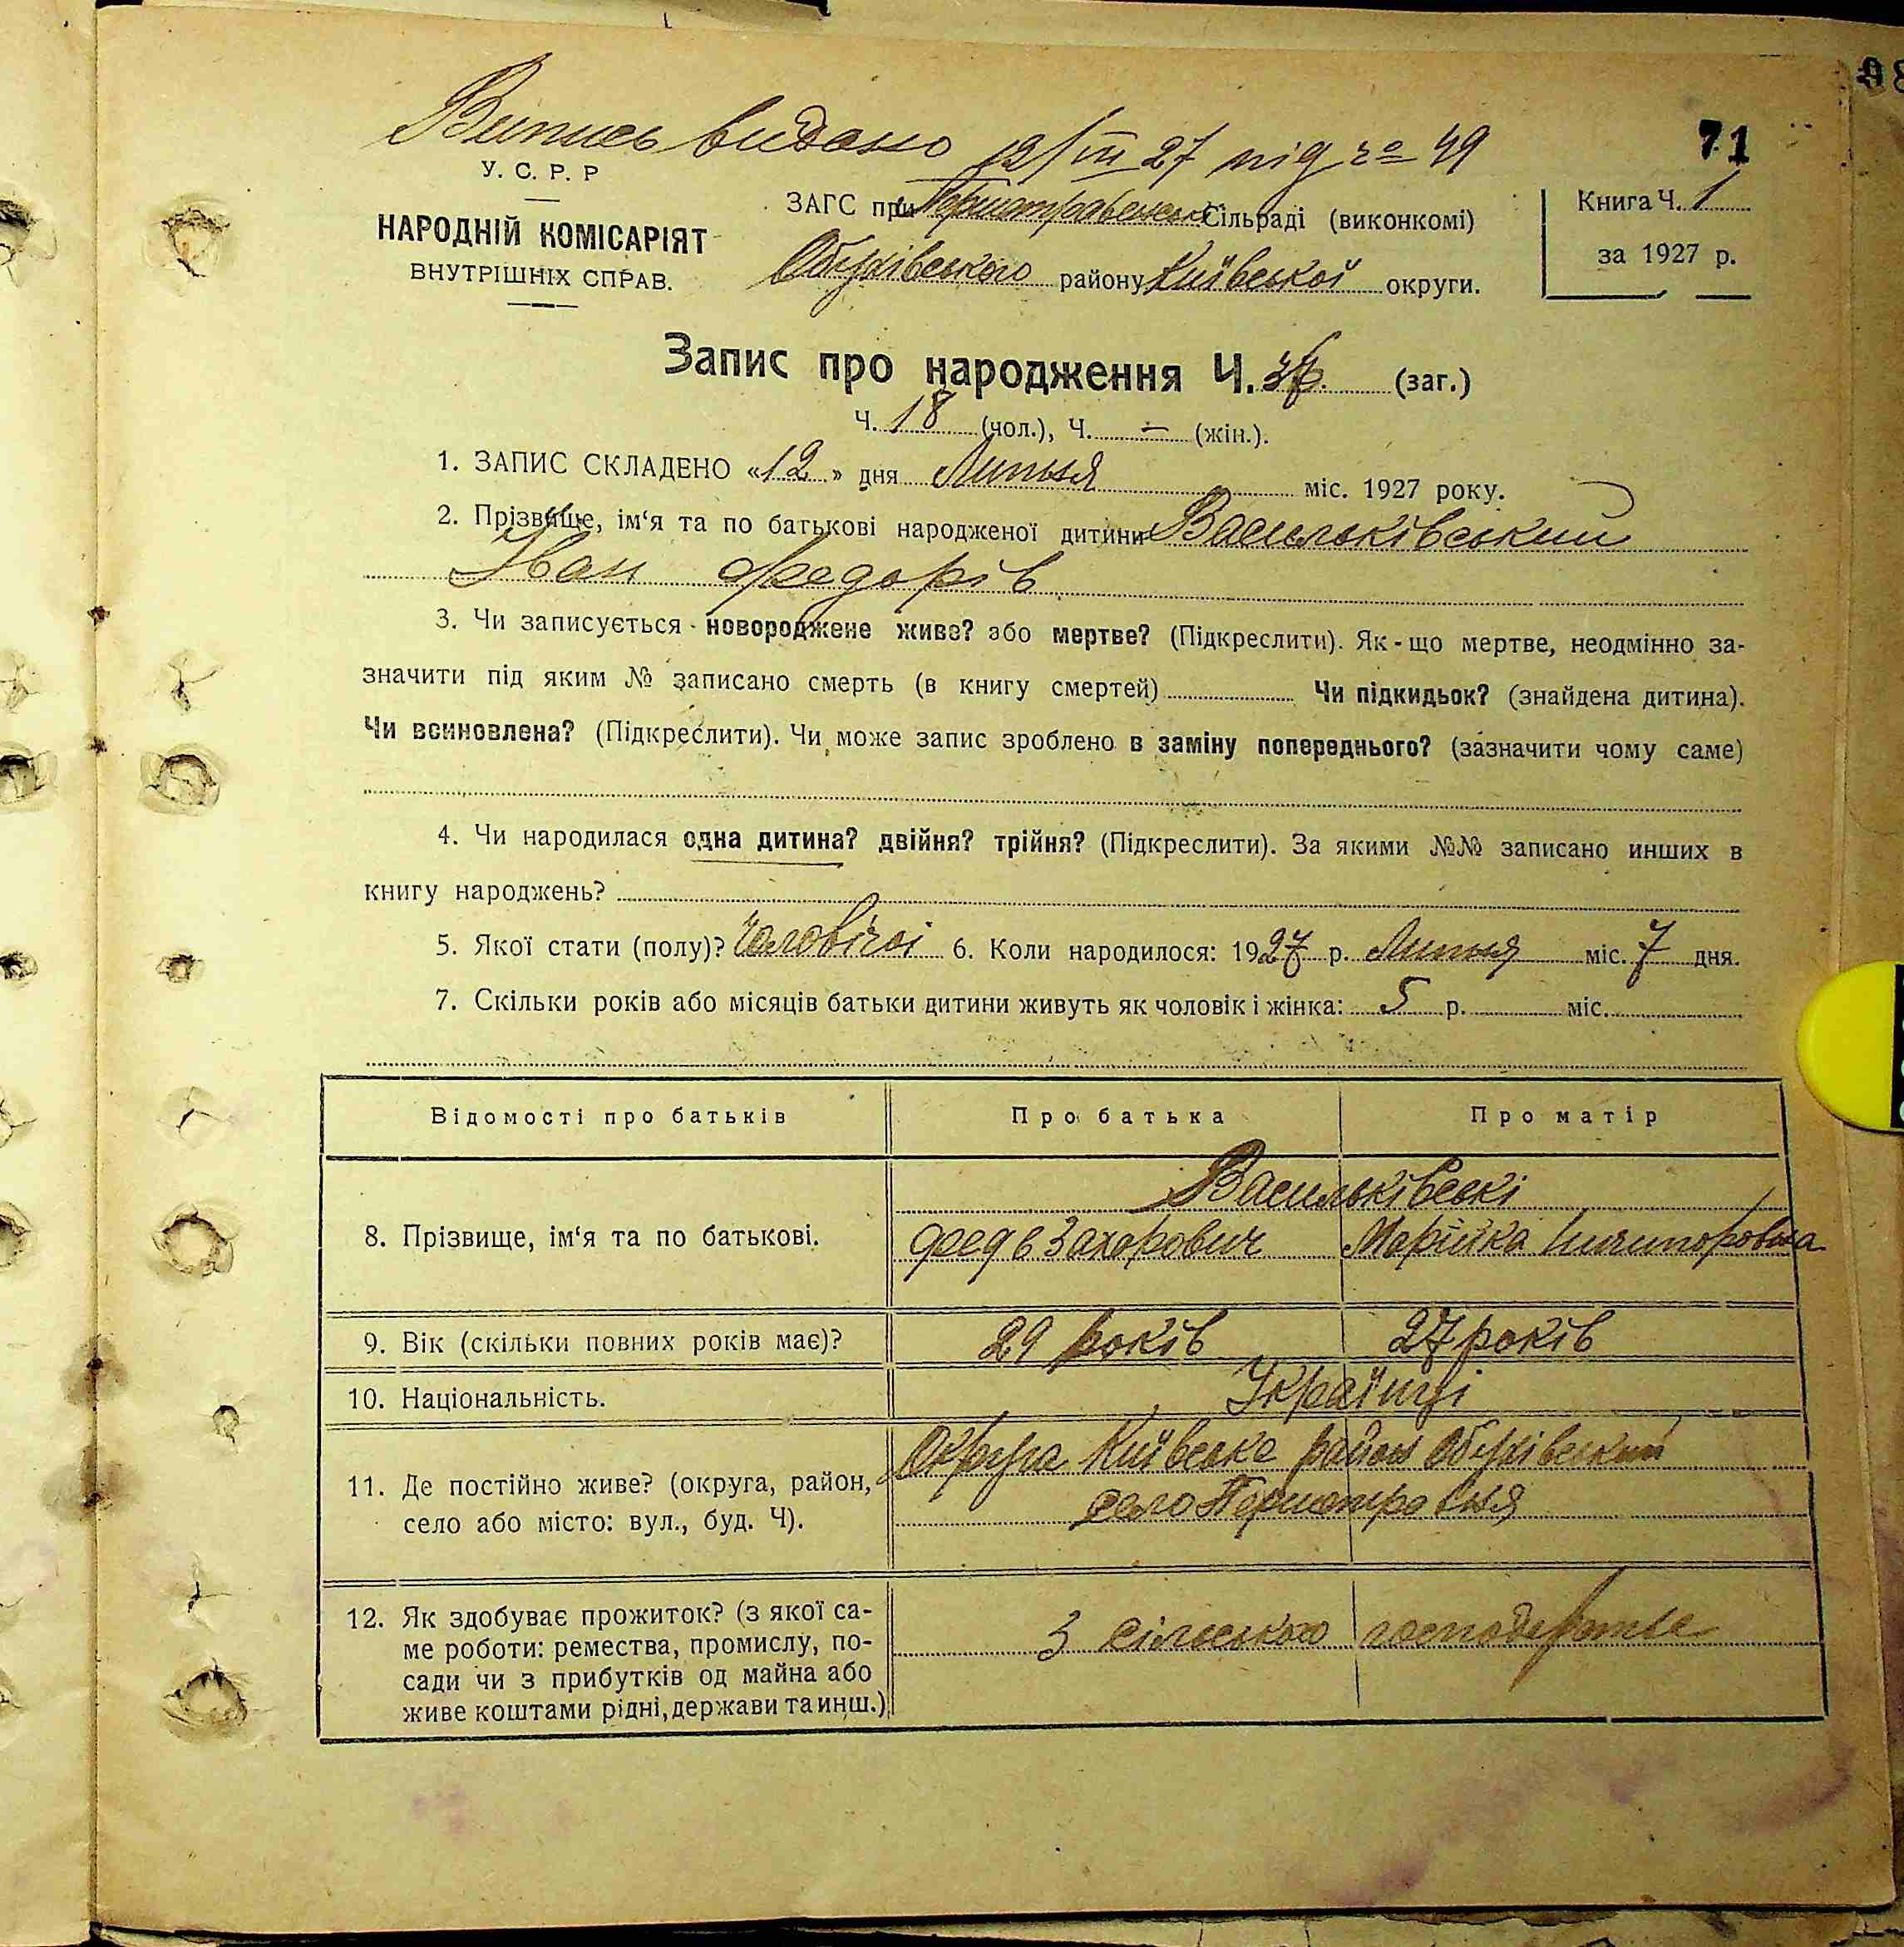 Випись видано 12/VII 27 під №49
71
У. С. Р. Р
НАРОДНІЙ КОМІСАРІЯТ
ВНУТРІШНІХ СПРАВ.
ЗАГС при Сільраді (виконкомі)
Обухівського району Київської округи.
Книга Ч. 1
за 1927 р.
Запис про народження Ч. (заг.)
Ч. 18 (чол.), Ч. – (жін.).
1. ЗАПИС СКЛАДЕНО «12» дня Липня міс. 1927 року.
2. Прізвище, ім‘я та по батькові народженої дитини Васильківський
Іван Федорів
3. Чи записується - новороджене живе? або мертве? (Підкреслити). Як - що мертве, неодмінно за-
значити під яким № записано смерть (в книгу смертей) Чи підкидьок? (знайдена дитина).
Чи всиновлена? (Підкреслити). Чи може запис зроблено в заміну попереднього? (зазначити чому саме)
4. Чи народилася одна дитина? двійня? трійня? (Підкреслити). За якими №№ записано инших в
книгу народжень?
5. Якої стати (полу)? Чоловічої 6. Коли народилося: 1927 р. Липня міс. 7 дня.
7. Скільки років або місяців батьки дитини живуть як чоловік і жінка: 5 р. міс.
Відомості про батьків Про батька Про матір
Васильківські
8. Прізвище, ім‘я та по батькові. Захарович Марійка
9. Вік (скільки повних років має)? 29 років 27 років
10. Національність. Українці
Округа Київська район Обухівський
11. Де постійно живе? (округа, район,
село
село або місто: вул., буд. Ч).
12. Як здобуває прожиток? (з якої са-
ме роботи: ремества, промислу, по-
З сільського господарства
сади чи з прибутків од майна або
живе коштами рідні, держави та инш.)